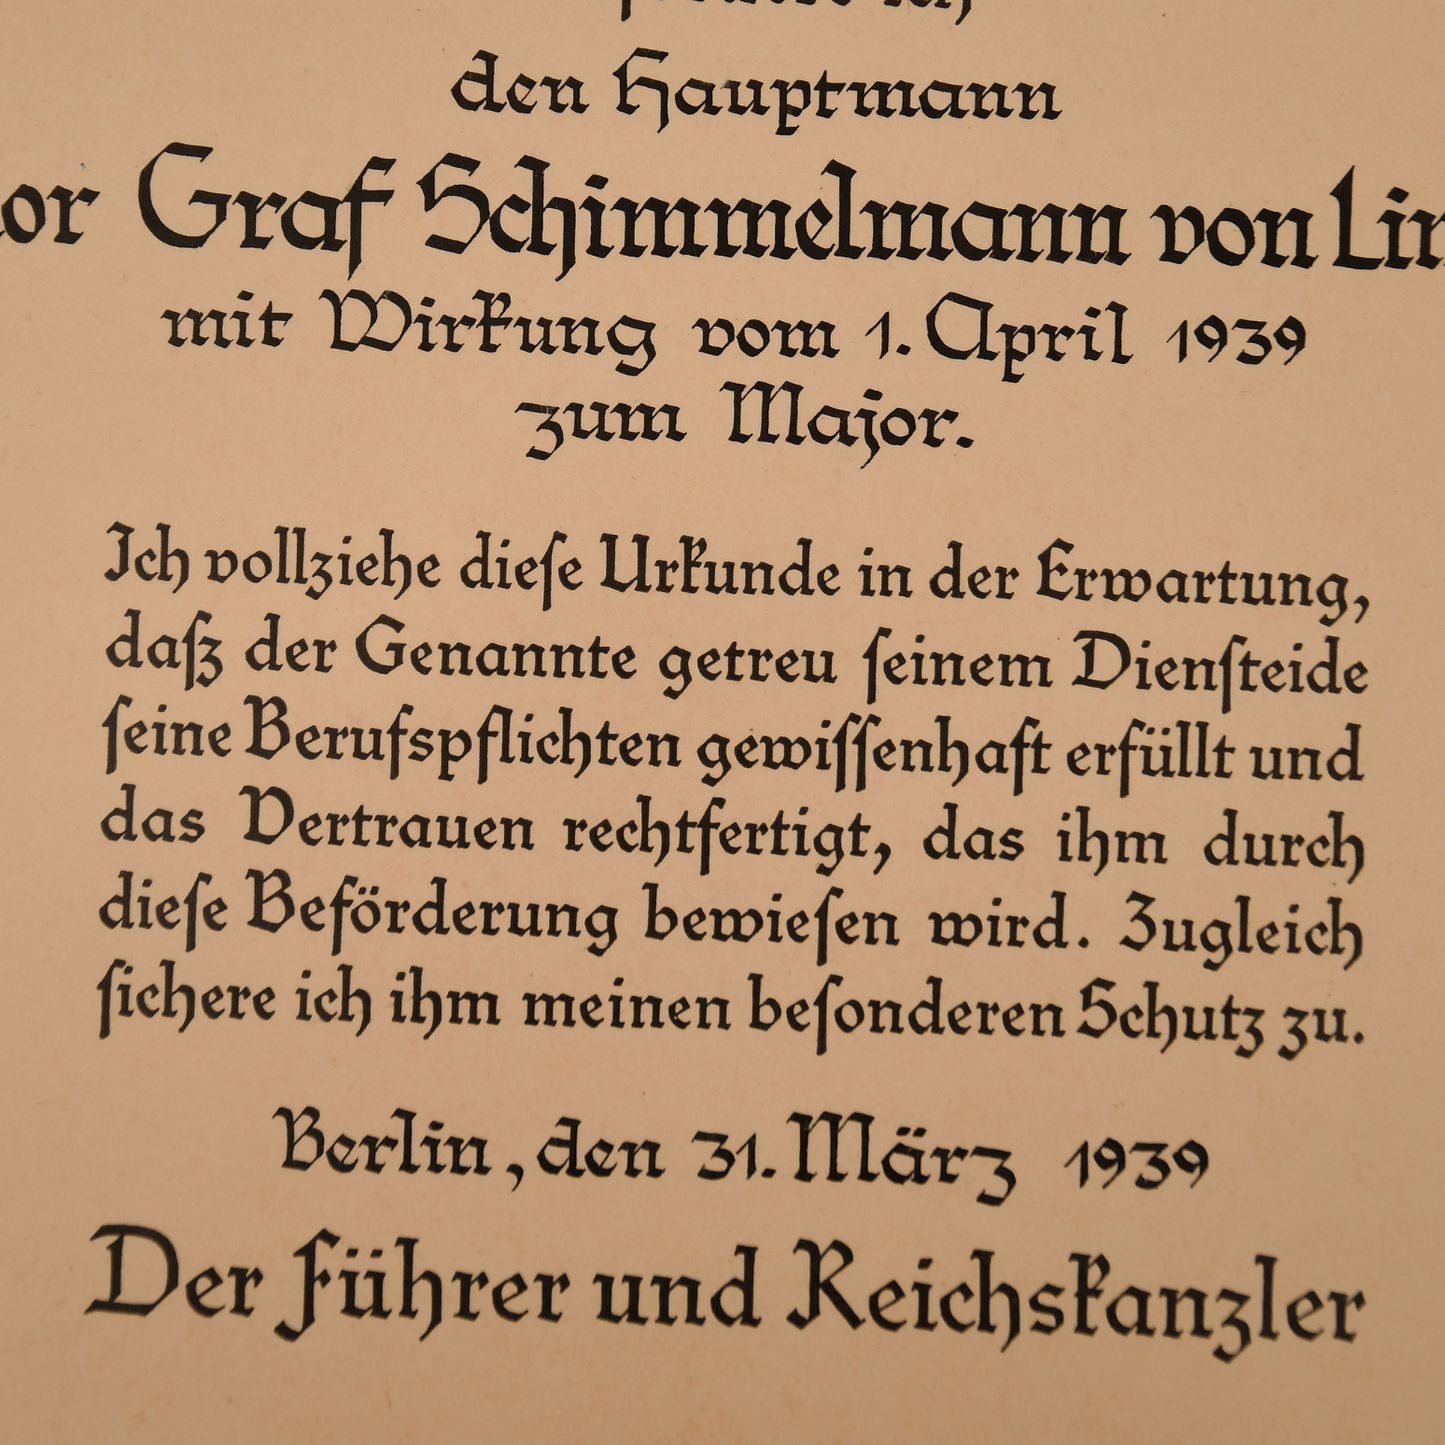 den Hauptmann
Graf Schimmelmann von
mit Wirkung vom 1. April 1939
zum Major.
Ich vollziehe dieſe Urkunde in der Erwartung,
daſz der Genannte getreu ſeinem Dienſteide
ſeine Berufspflichten gewiſſenhaft erfüllt und
das Vertrauen rechtfertigt, das ihm durch
dieſe Beförderung bewieſen wird. Zugleich
ſichere ich ihm meinen beſonderen Schutz zu.
Berlin, den 31. März 1939
Der Führer und Reichskanzler